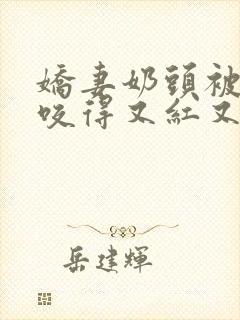 嬌妻奶頭被
咬得又紅又
岳建輝